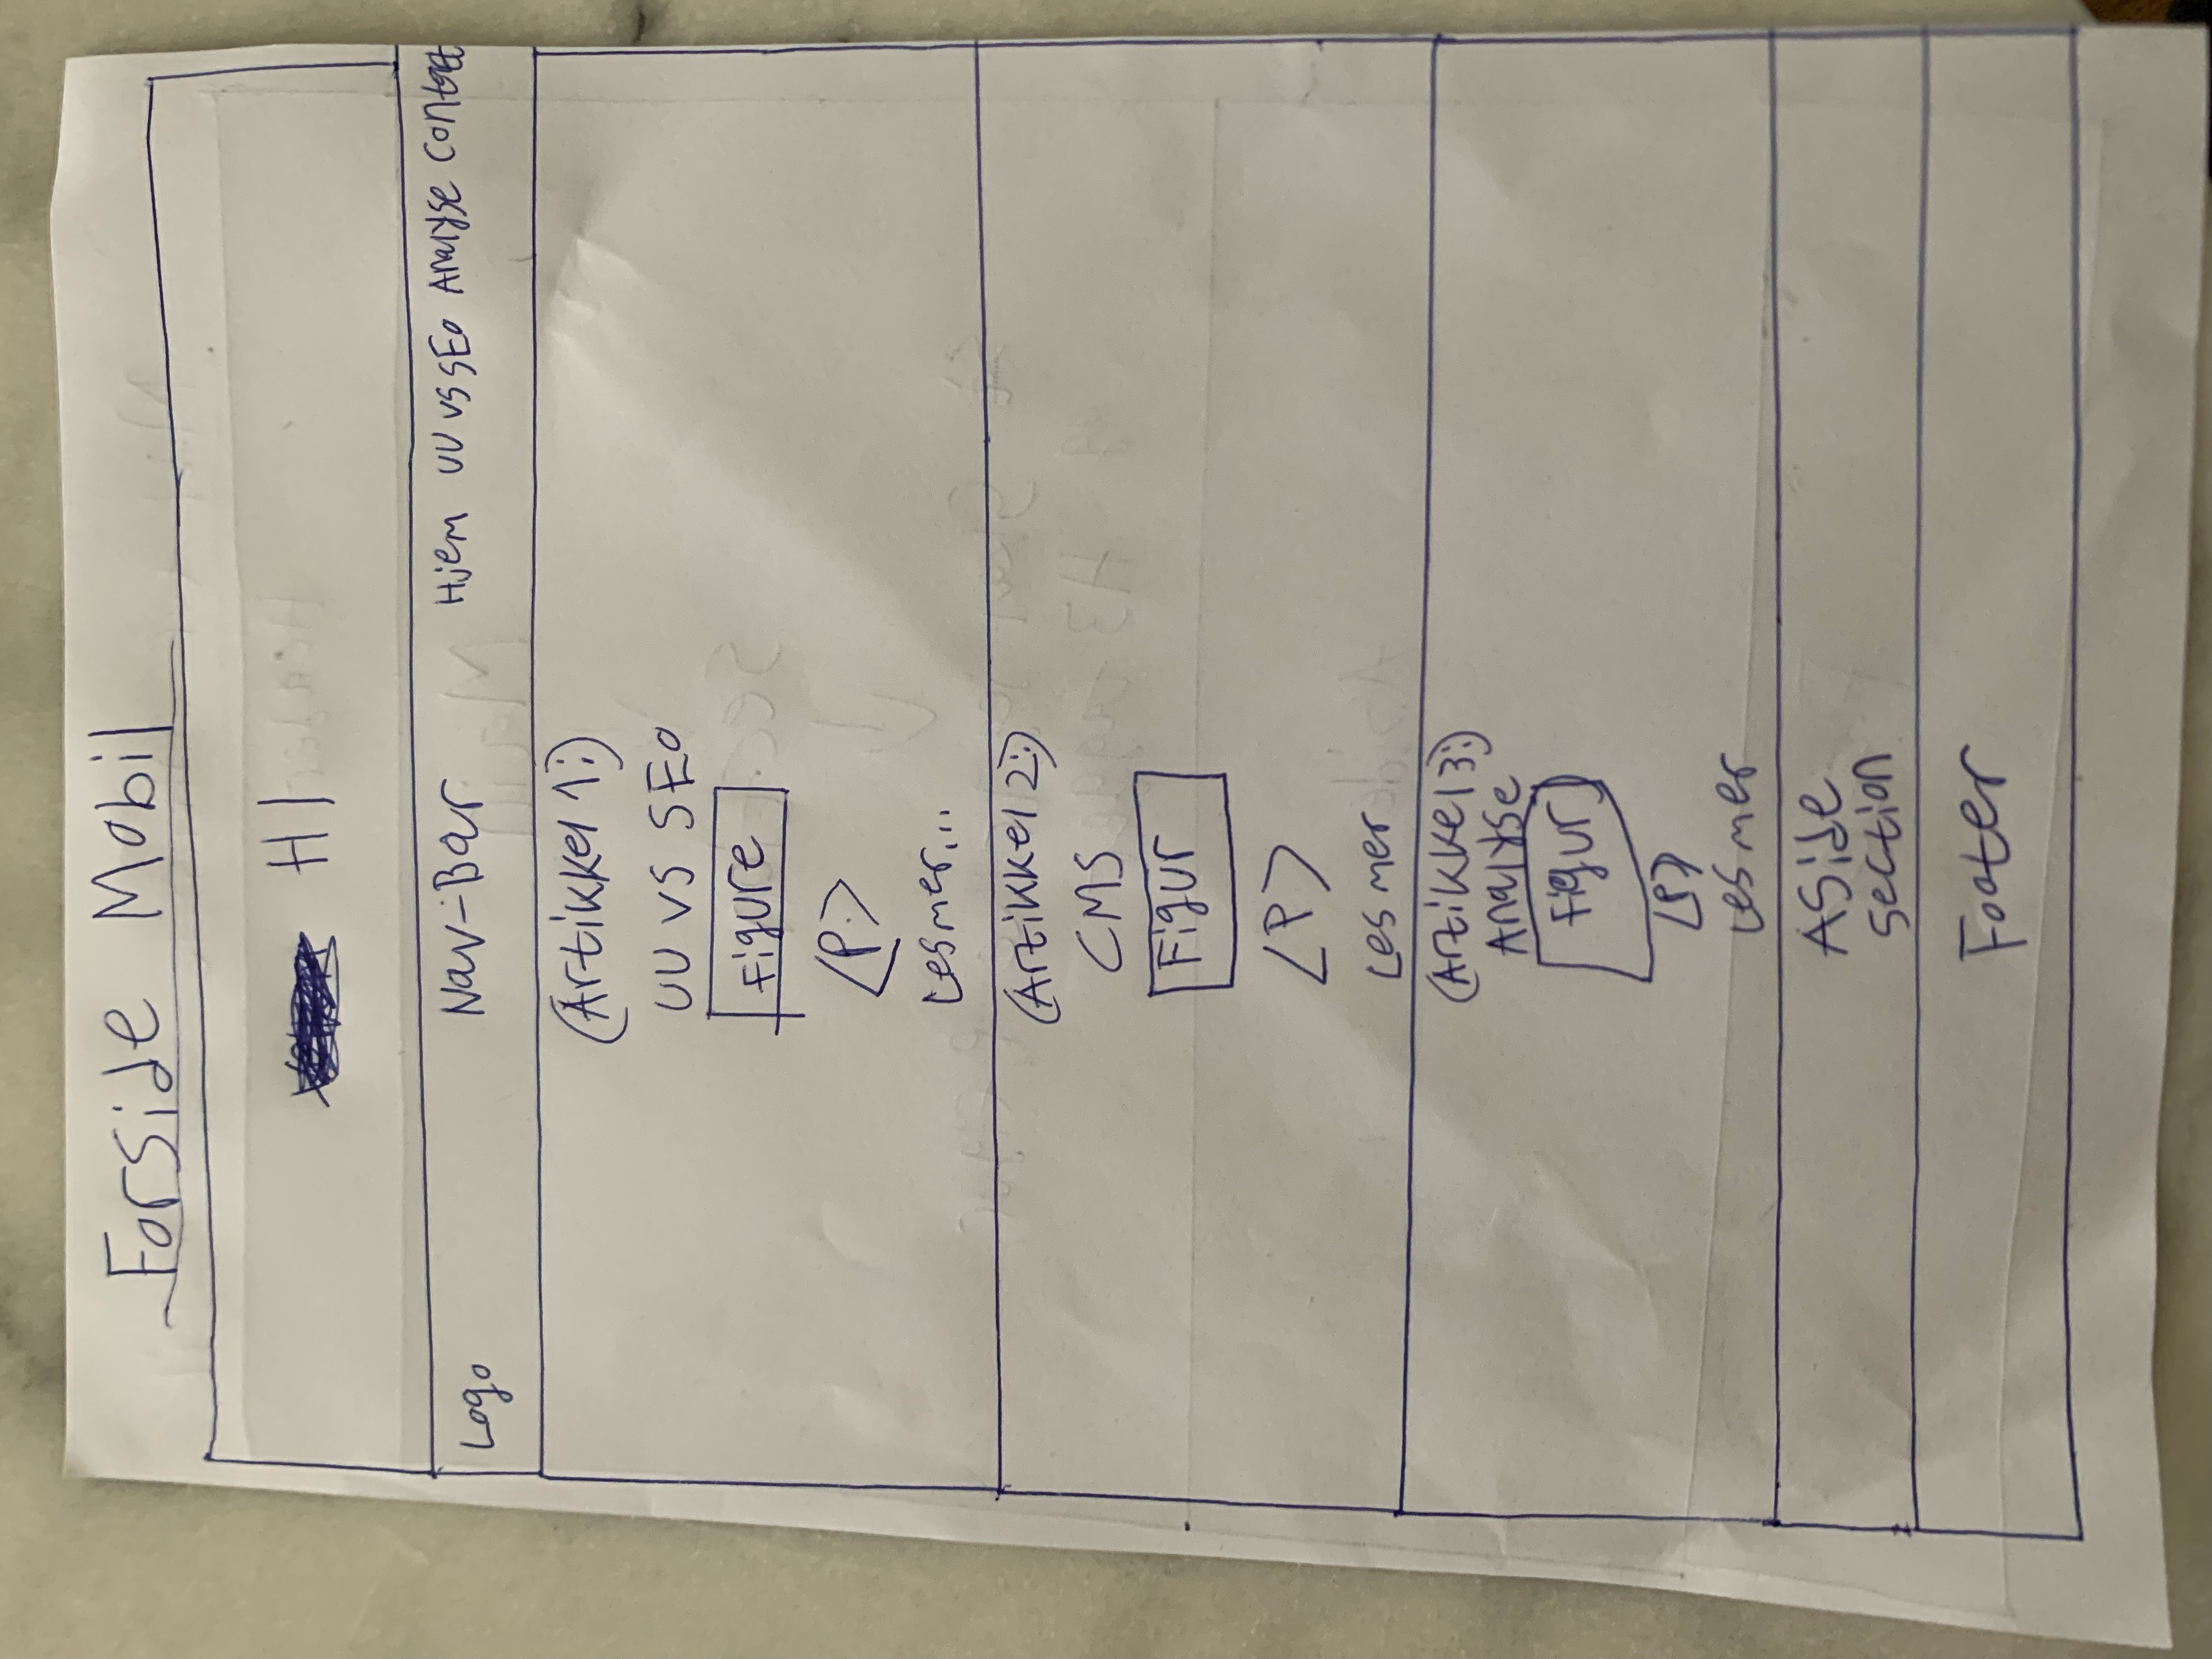 Forside Mobil
H1
Logo Nav-Bar Hjem UU vs SEO Analyse Contact
(Artikkel 1:)
UU VS SEO
Figure
<P>
Les mer...
(Artikkel 2:)
CMS
Figur
<P>
Les mer
(Artikkel 3:)
Analyse
Figur
<P>
Les mer
Aside
section
Footer